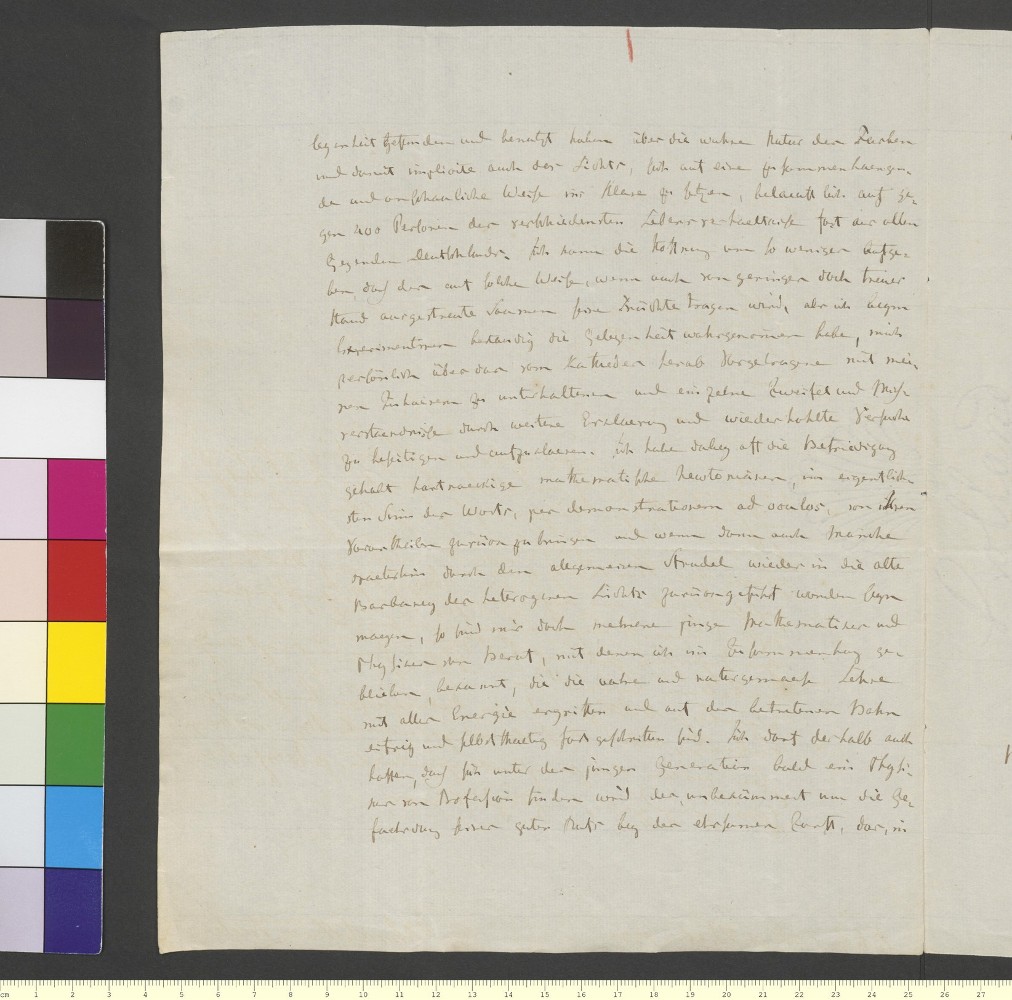 legenheit gefunden und benutzt haben über die wahre Natur der Farben
und damit implicite auch des Lichts, sich auf eine zusammenhaengen-
de und anschauliche Weise ins Klare zu setzen, belaeuft sich auf ge-
gen 400 Personen der verschiedensten Lebensverhaeltnisse fast aus allen
Gegenden Deutschlands. Ich kann die Hoffnung um so weniger aufge-
ben, dass der auf solche Weise, wenn auch von geringer doch treuer
Hand ausgestreute Saamen seine Früchte tragen wird, als ich beym
Experimentiren bestaendig die Gelegenheit wahrgenommen habe, mich
persönlich über das vom Katheder herab Vorgetragene mit mei-
nen Zuhoerern zu unterhalten und einzelne Zweifel und Miss-
verstaendnisse durch weitere Erklaerung und wiederhohlte Versuche
zu beseitigen und aufzuklaeren. Ich habe dabey oft die Befriedigung
gehabt hartnaeckige mathematische Newtonianer, im eigentlich-
sten Sinn des Worts, per demonstrationem ad oculos, von ihren
Vorurtheilen zurückzubringen und wenn dann auch Manche
spaeterhin durch den allgemeinen Strudel wieder in die alte
Barbarey des heterogenen Lichts zurückgeführt worden seyn
moegen, so sind mir doch mehrere junge Mathematiker und
Physiker von Beruf, mit denen ich in Zusammenhang ge-
blieben, bekannt, die die wahre und naturgemaesse Lehre
mit aller Energie ergriffen und auf der betretenen Bahn
eifrig und selbstthaetig fortgeschritten sind. Ich darf deshalb auch
hoffen, dass sich unter der jungen Generation bald ein Physi-
ker von Profession finden wird der, unbekümmert um die Ge-
faehrdung seines guten Rufs bey der ehrsamen Zunft, das, in